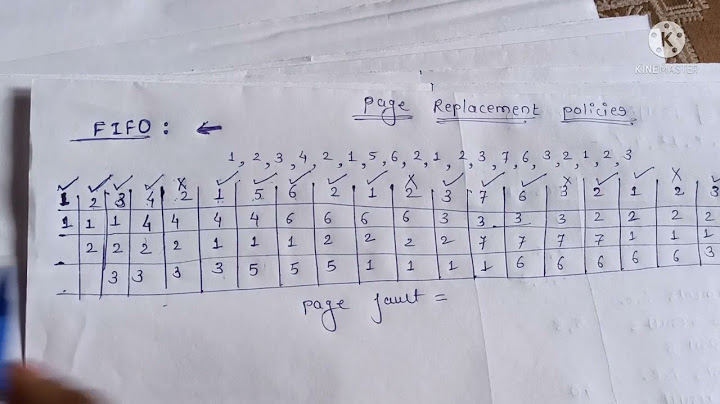 KINEMASTER
Page Replacement policies.
FIFO : ←
1, 2, 3, 4, 2, 1, 5, 6, 2, 1, 2, 3, 7, 6, 3, 2, 1, 2, 3
✓ ✓ ✓ ✓ x ✓ ✓ ✓ ✓ ✓ x ✓ ✓ ✓ x ✓ ✓ x ✓
1 2 3 4 2 1 5 6 2 1 2 3 7 6 3 2 1 2 3
1 1 1 4 4 4 4 6 6 6 6 3 3 3 3 2 2 2 2
2 2 2 2 1 1 1 2 2 2 2 7 7 7 7 1 1 1
3 3 3 3 5 5 5 1 1 1 1 6 6 6 6 6 3
page fault =